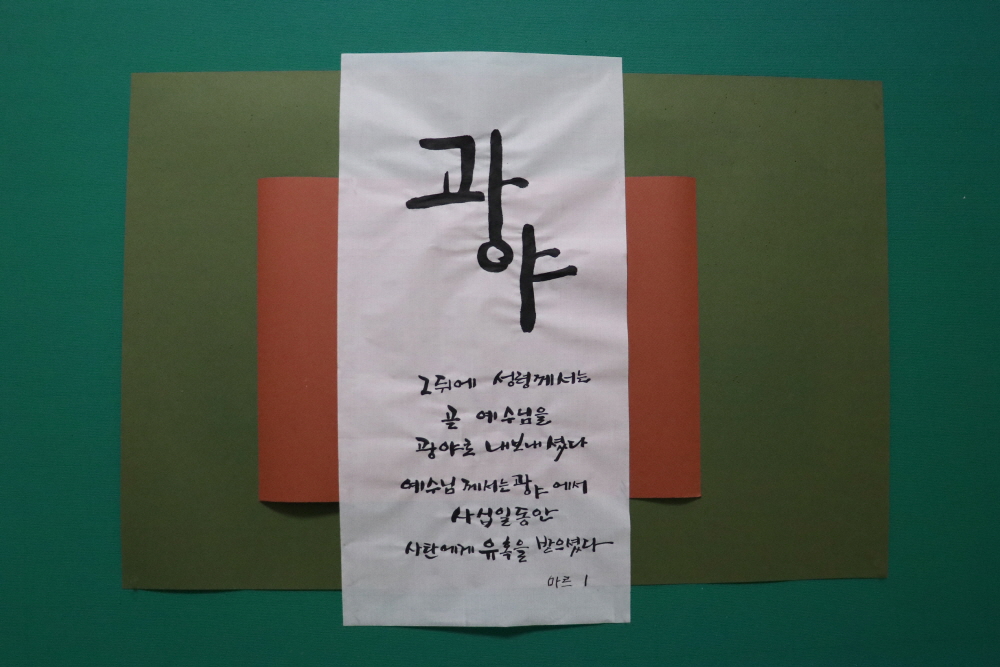 광야
그 뒤에 성령께서는
곧 예수님을
광야로 내보내셨다
예수님께서는 광야에서
사십일동안
사탄에게 유혹을 받으셨다
마르 1